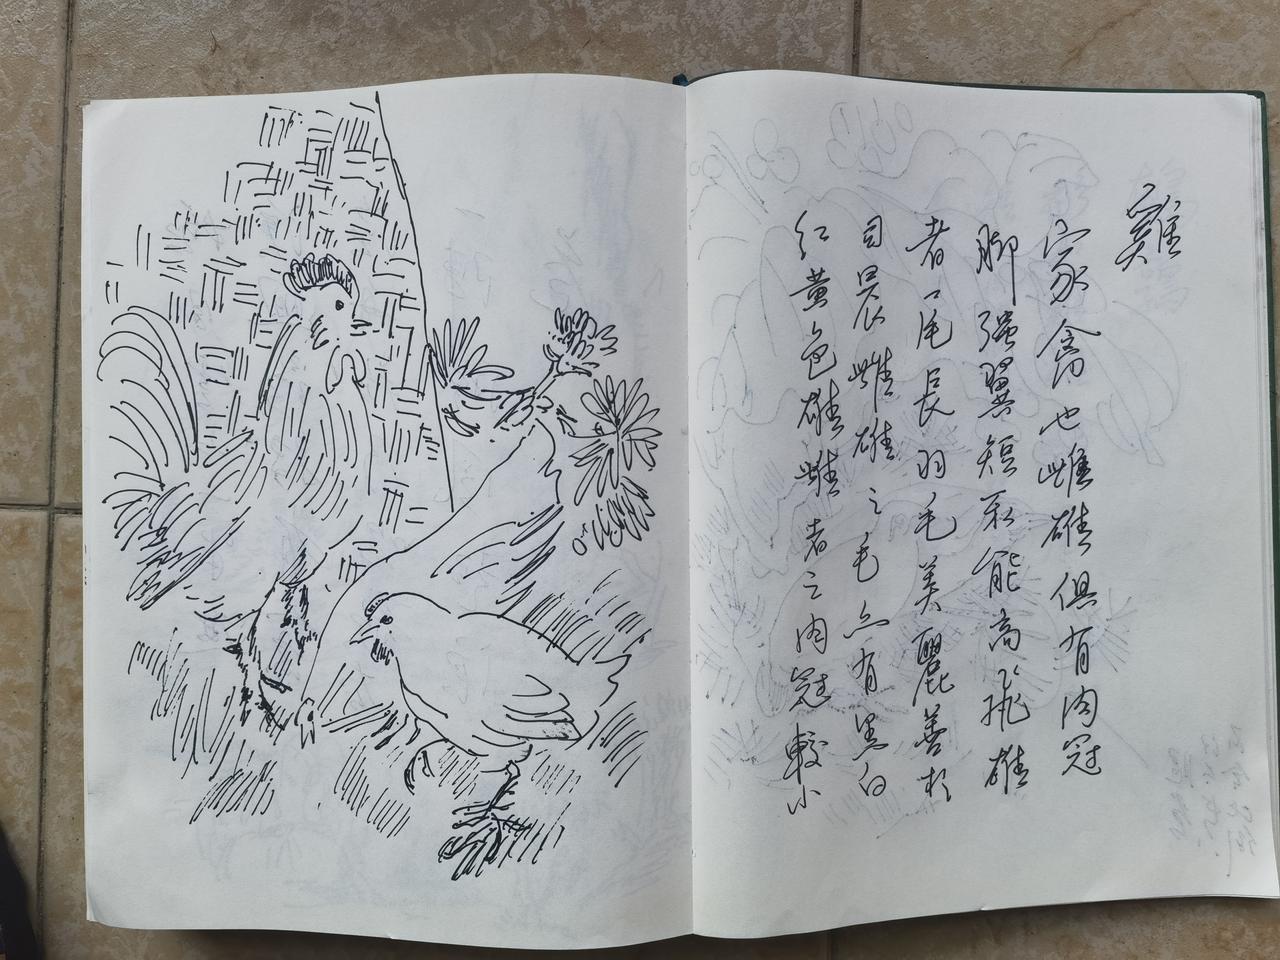 雞
家禽也雌雄俱有肉冠
脚强翼短不能高飛雄
者尾長羽毛美麗善於
司晨雌雄之毛有黑白
紅黄色雄雌者之肉冠較小